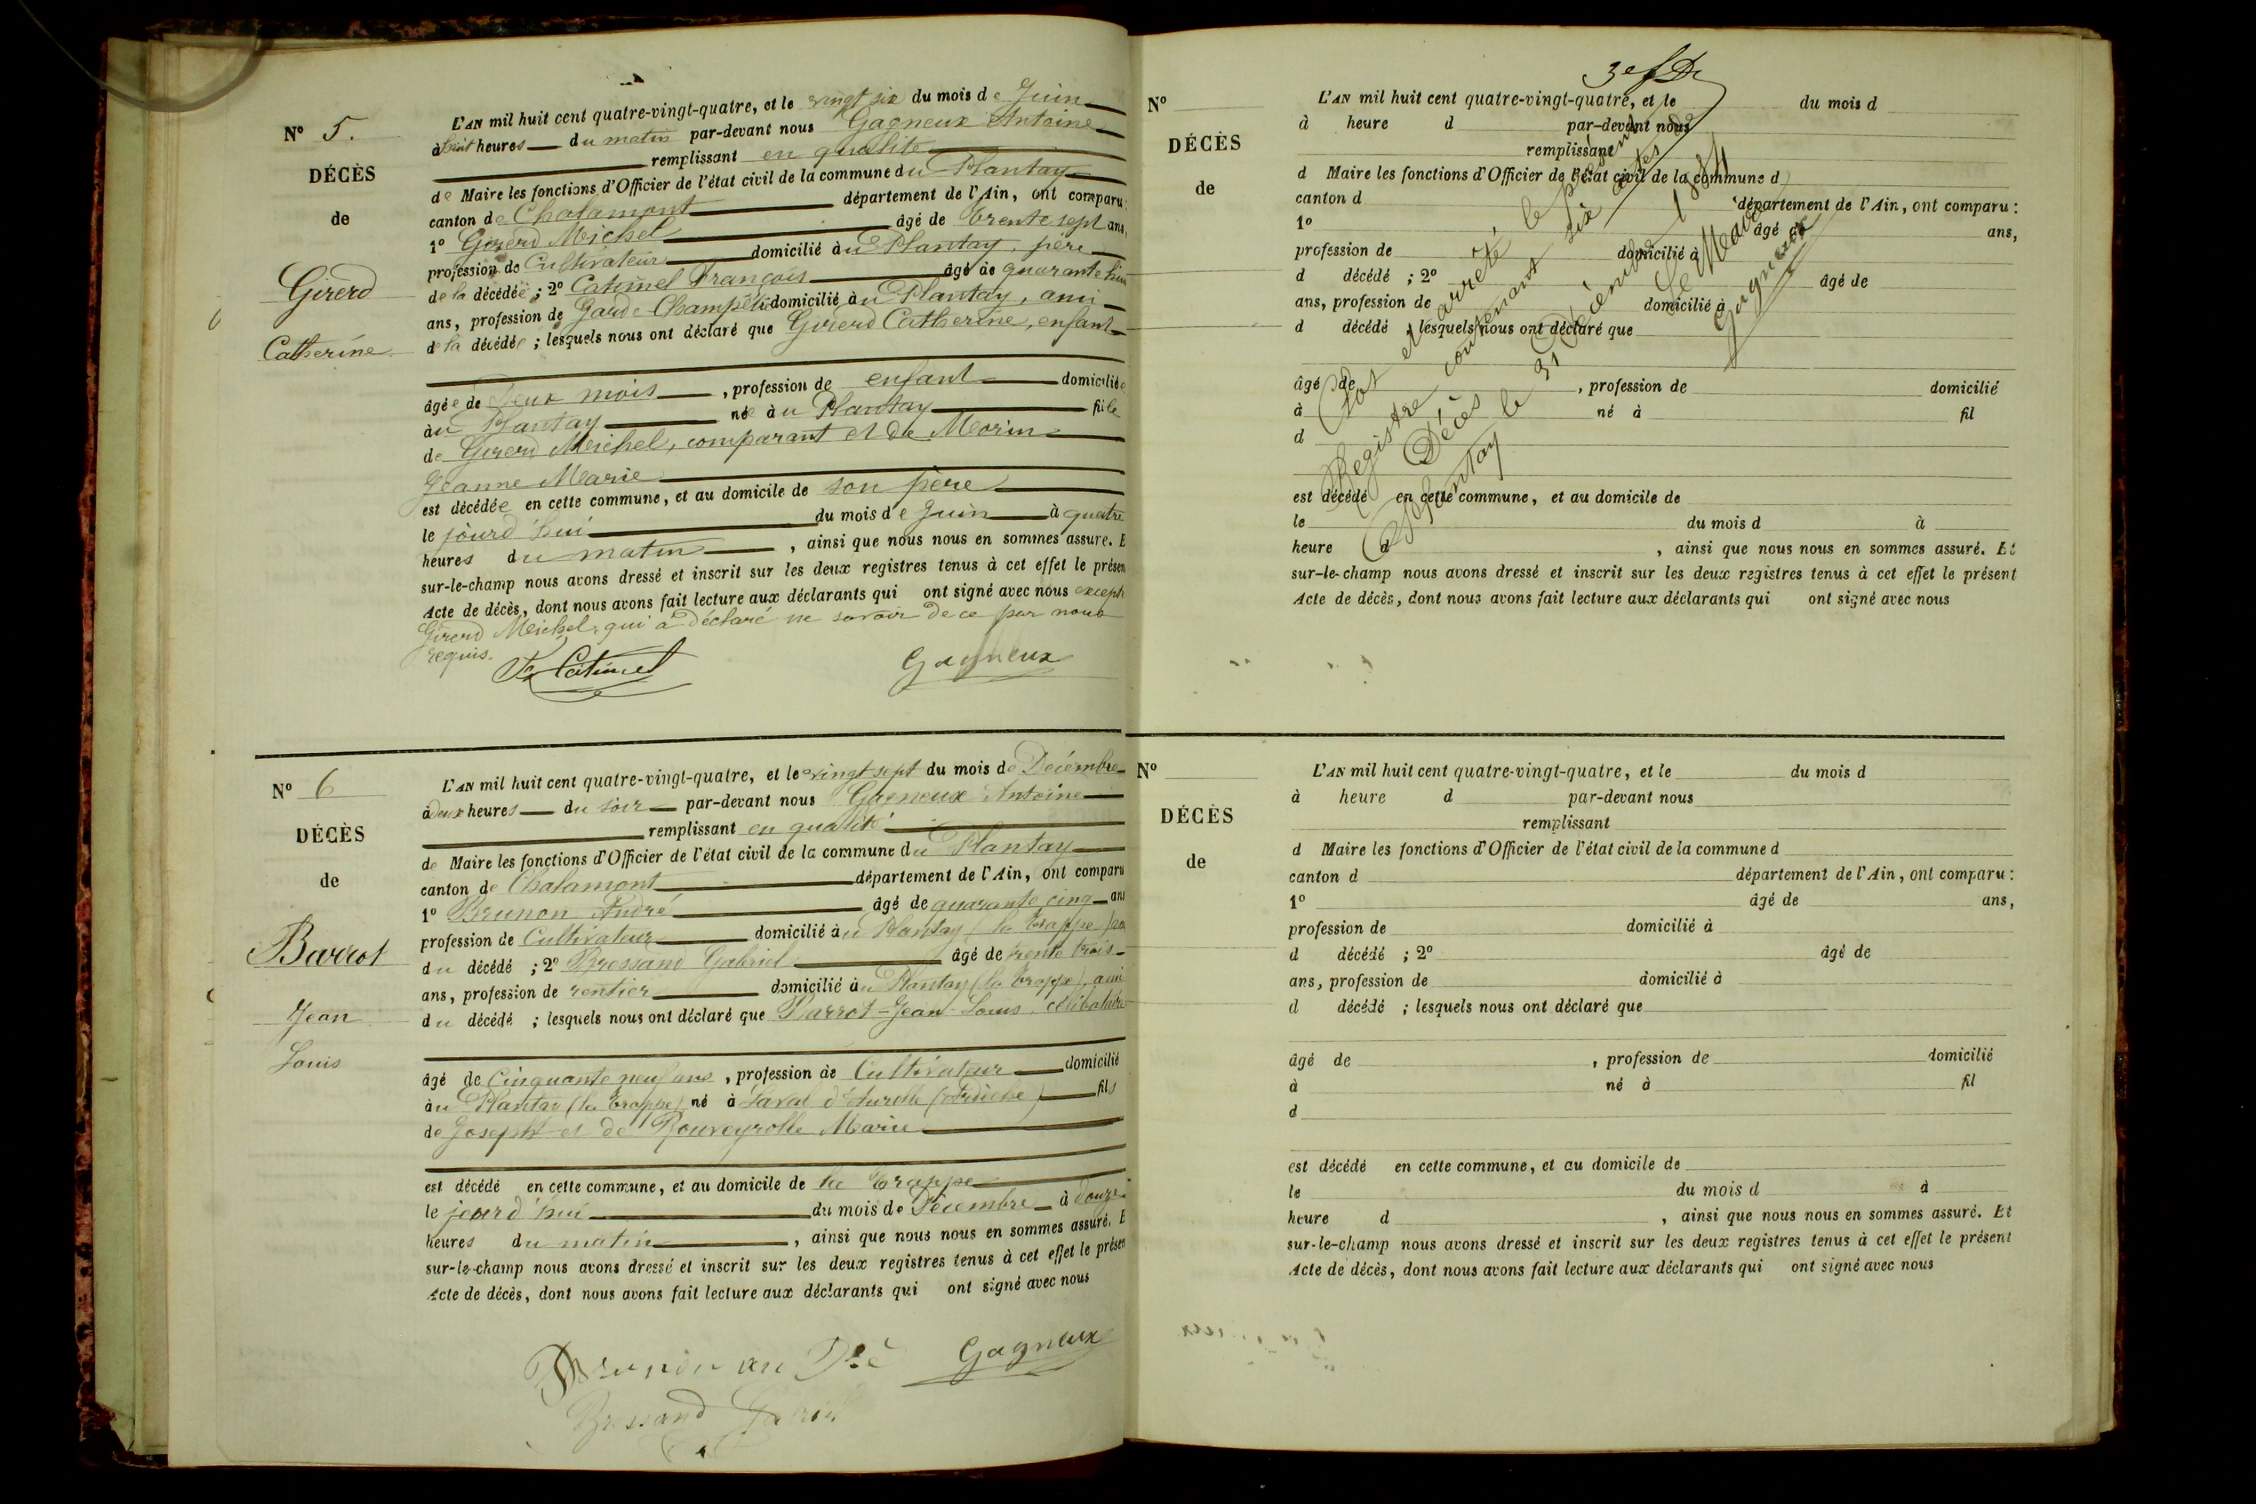 N° 5.
DÉCÈS
de
Girerd
Catherine
L'AN mil huit cent quatre-vingt-quatre, et le vingt six du mois de Juin
à huit heures du matin par-devant nous Gagneux Antoine
remplissant en qualité
de Maire les fonctions d'Officier de l'état civil de la commune du Plantay
canton de Chalamont département de l'Ain, ont comparu:
1° Girerd Michel âgé de trente sept ans,
profession de Cultivateur domicilié au Plantay, père
de la décédée; 2° Catimel François âgé de quarante huit
ans, profession de Garde Champêtre domicilié au Plantay, ami
de la décédée; lesquels nous ont déclaré que Girerd Catherine, enfant
âgée de deux mois, profession de enfant domiciliée
au Plantay née au Plantay fille
de Girerd Meichel, comparant et de Morin
Jeanne Marie
est décédée en cette commune, et au domicile de son père
le jourd'hui du mois de Juin à quatre
heures du matin, ainsi que nous nous en sommes assuré. E
sur-le-champ nous avons dressé et inscrit sur les deux registres tenus à cet effet le présen
Acte de décès, dont nous avons fait lecture aux déclarants qui ont signé avec nous except
Girerd Meichel, qui a déclaré ne savoir de ce par nous
requis.
Catimel Gagneux
N° 6
DÉCÈS
de
Barrot
Jean
Louis
L'AN mil huit cent quatre-vingt-quatre, et le vingt sept du mois de Décembre
à deux heures du soir par-devant nous Gagneux Antoine
remplissant en qualité
de Maire les fonctions d'Officier de l'état civil de la commune du Plantay
canton de Chalamont département de l'Ain, ont comparu
1° Brunon André âgé de quarante cinq ans
profession de Cultivateur domicilié au Plantay (la Trappe)
du décédé; 2° Bressand Gabriel âgé de trente trois
ans, profession de rentier domicilié au Plantay (la Trappe), ami
du décédé; lesquels nous ont déclaré que Barrot Jean Louis, célibataire
âgé de Cinquante neuf ans, profession de Cultivateur domicilié
au Plantay (la Trappe) né à Laval d'Aurelle (Ardèche) fils
de Joseph et de Rouveyrolle Marie
est décédé en cette commune, et au domicile de la Trappe
le jourd'hui du mois de Décembre à douze
heures du matin, ainsi que nous nous en sommes assuré. E
sur-le-champ nous avons dressé et inscrit sur les deux registres tenus à cet effet le présen
Acte de décès, dont nous avons fait lecture aux déclarants qui ont signé avec nous
Brunon an Dré Gagneux
Bressand Gabriel
N°
DÉCÈS
de
L'AN mil huit cent quatre-vingt-quatre, et le du mois d
à heure d par-devant nous
remplissant
d Maire les fonctions d'Officier de l'état civil de la commune d
canton d département de l'Ain, ont comparu:
1° âgé de ans,
profession de domicilié à
d décédé; 2° âgé de
ans, profession de domicilié à
d décédé; lesquels nous ont déclaré que
âgé de, profession de domicilié
à né à fil
d
est décédé en cette commune, et au domicile de
le du mois d à
heure d, ainsi que nous nous en sommes assuré. Et
sur-le-champ nous avons dressé et inscrit sur les deux registres tenus à cet effet le présent
Acte de décès, dont nous avons fait lecture aux déclarants qui ont signé avec nous
Clos et arrêté le présent
Registre contenant six actes de
Décès
Plantay le 31 Décembre 1884
Le Maire
Gagneux
N°
DÉCÈS
de
L'AN mil huit cent quatre-vingt-quatre, et le du mois d
à heure d par-devant nous
remplissant
d Maire les fonctions d'Officier de l'état civil de la commune d
canton d département de l'Ain, ont comparu:
1° âgé de ans,
profession de domicilié à
d décédé; 2° âgé de
ans, profession de domicilié à
d décédé; lesquels nous ont déclaré que
âgé de, profession de domicilié
à né à fil
d
est décédé en cette commune, et au domicile de
le du mois d à
heure d, ainsi que nous nous en sommes assuré. Et
sur-le-champ nous avons dressé et inscrit sur les deux registres tenus à cet effet le présent
Acte de décès, dont nous avons fait lecture aux déclarants qui ont signé avec nous